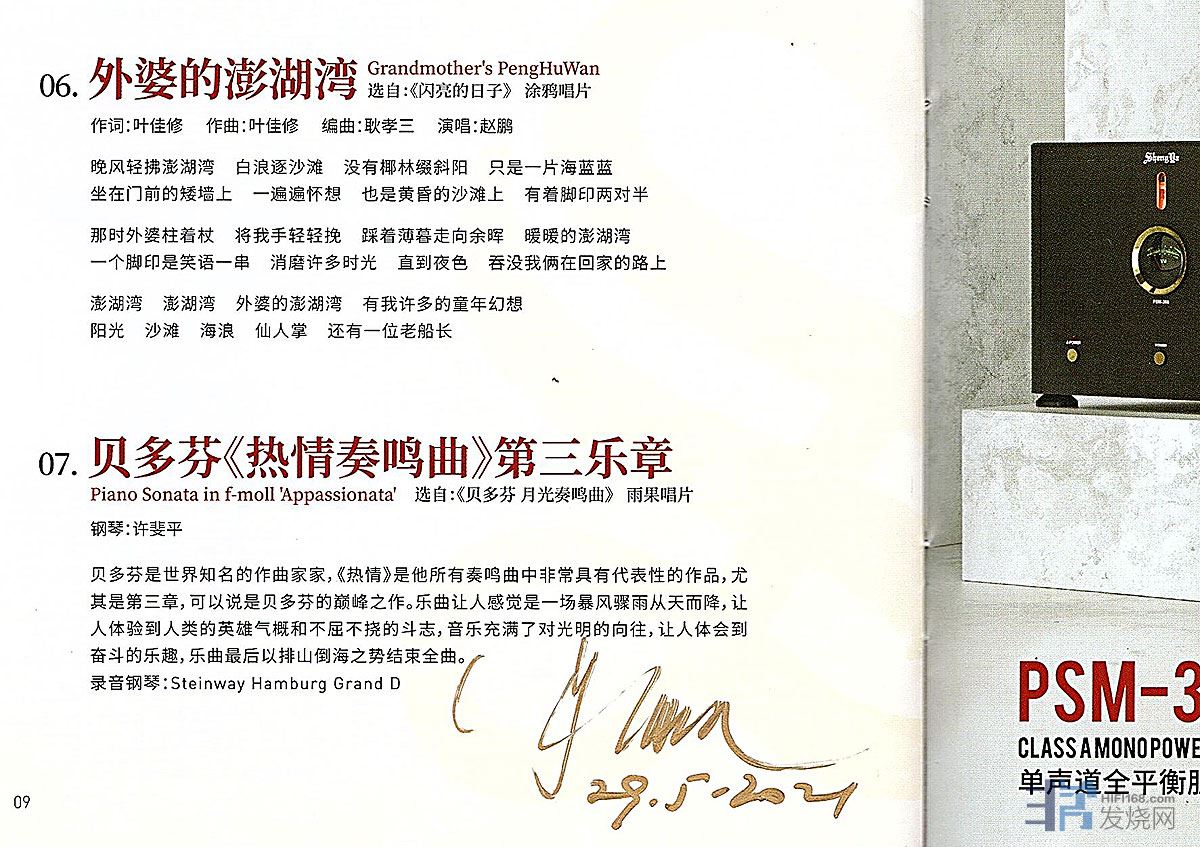 06. 外婆的澎湖湾 Grandmother's PengHuWan
选自:《闪亮的日子》 涂鸦唱片
作词:叶佳修 作曲:叶佳修 编曲:耿孝三 演唱:赵鹏
晚风轻拂澎湖湾 白浪逐沙滩 没有椰林缀斜阳 只是一片海蓝蓝
坐在门前的矮墙上 一遍遍怀想 也是黄昏的沙滩上 有着脚印两对半
那时外婆柱着杖 将我手轻轻挽 踩着薄暮走向余晖 暖暖的澎湖湾
一个脚印是笑语一串 消磨许多时光 直到夜色 吞没我俩在回家的路上
澎湖湾 澎湖湾 外婆的澎湖湾 有我许多的童年幻想
阳光 沙滩 海浪 仙人掌 还有一位老船长
07. 贝多芬《热情奏鸣曲》第三乐章
Piano Sonata in f-moll 'Appassionata' 选自:《贝多芬 月光奏鸣曲》 雨果唱片
钢琴:许斐平
贝多芬是世界知名的作曲家家,《热情》是他所有奏鸣曲中非常具有代表性的作品,尤
其是第三章,可以说是贝多芬的巅峰之作。乐曲让人感觉是一场暴风骤雨从天而降,让
人体验到人类的英雄气概和不屈不挠的斗志,音乐充满了对光明的向往,让人体会到
奋斗的乐趣,乐曲最后以排山倒海之势结束全曲。
录音钢琴:Steinway Hamburg Grand D
29.5.2021
09
ShengYa
PSM-3
CLASS A MONO POWE
单声道全平衡
HIFI168.com
发烧网